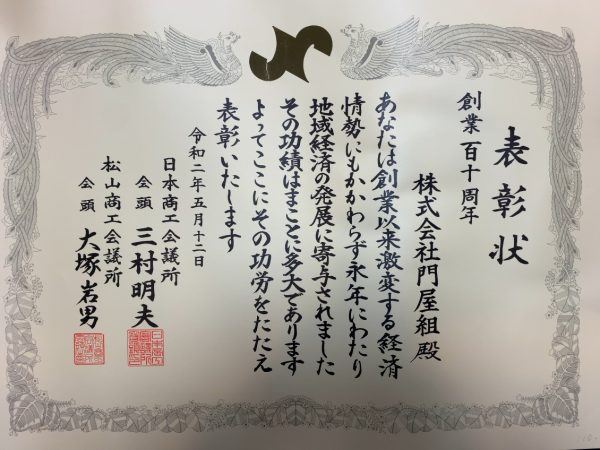 表彰状
創業百十周年
株式会社門屋組殿
あなたは創業以来激変する経済
情勢にもかかわらず永年にわたり
地域経済の発展に寄与されました
その功績はまことに多大であります
よってここにその功労をたたえ
表彰いたします
令和二年五月十二日
日本商工会議所
会頭 三村明夫
松山商工会議所
会頭 大塚岩男